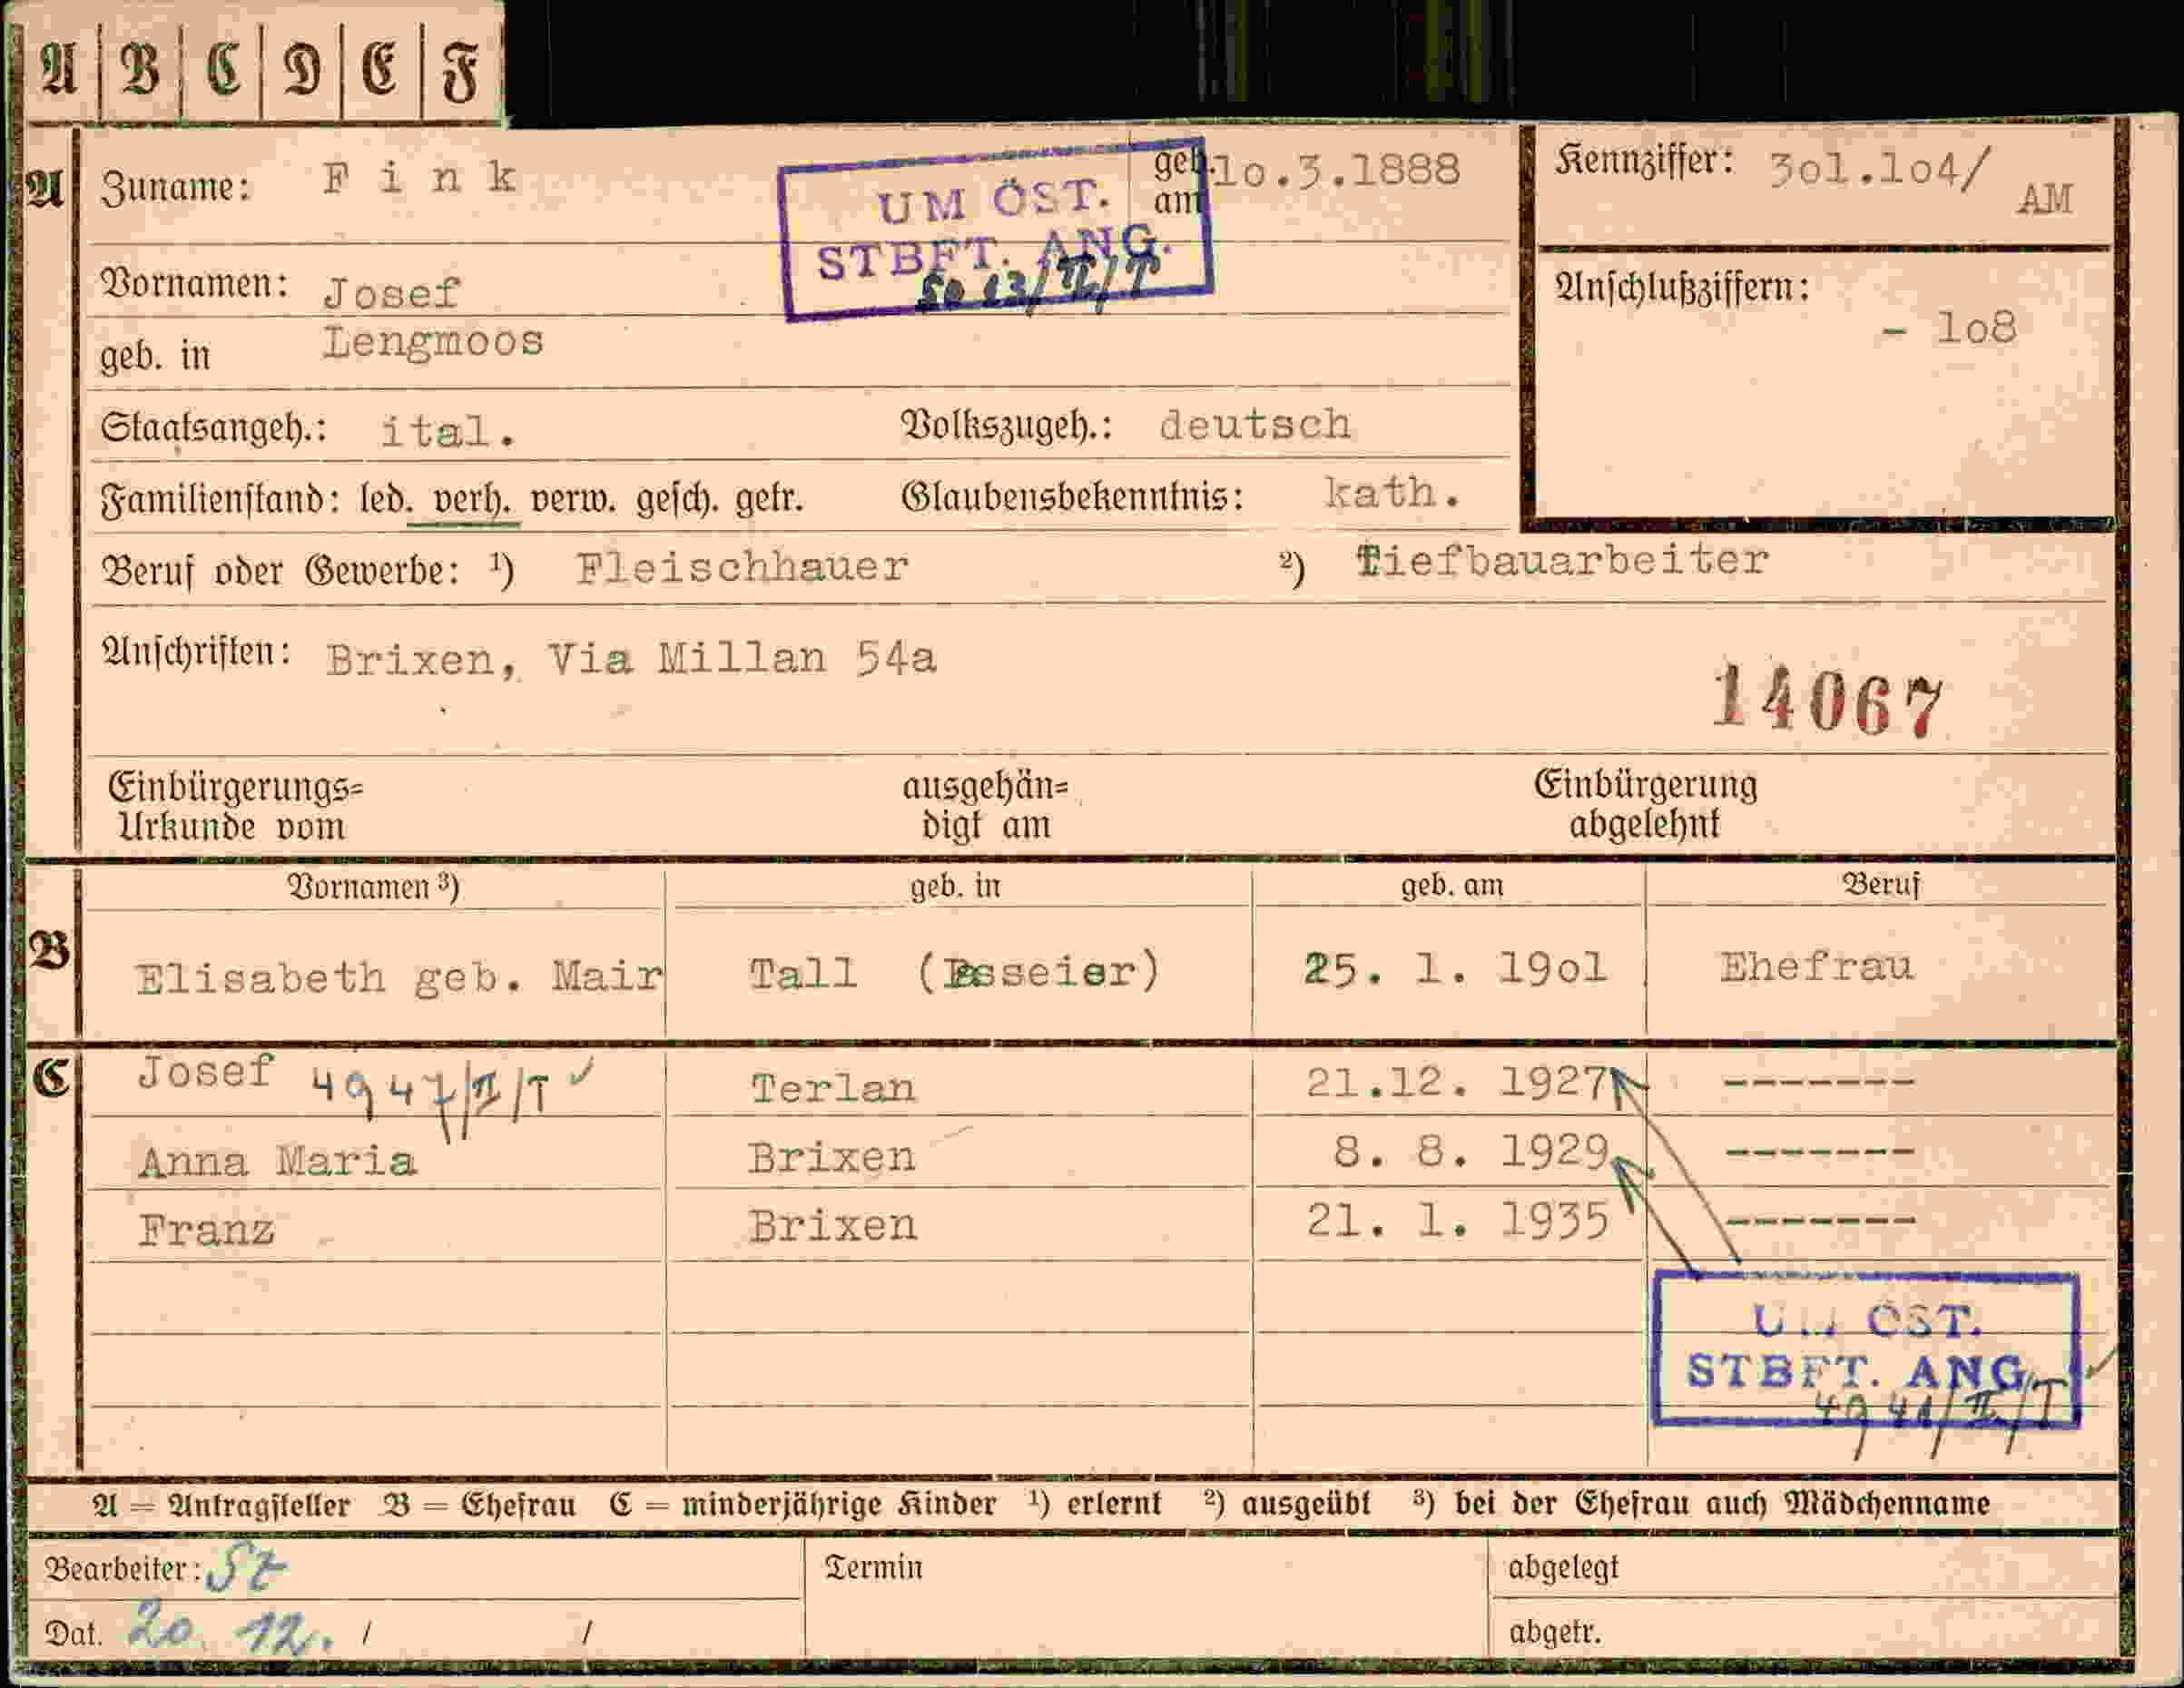 A B C D E F
A Zuname: Fink geb. am 10.3.1888 Kennziffer: 301.104/ AM
UM ÖST.
STBFT. ANG.
Vornamen: Josef Anschlußziffern:
- 108
geb. in Lengmoos
Staatsangeh.: ital. Volkszugeh.: deutsch
Familienstand: led. verh. verw. gesch. getr. Glaubensbekenntnis: kath.
Beruf oder Gewerbe: ¹) Fleischhauer ²) Tiefbauarbeiter
Anschriften: Brixen, Via Millan 54a
14067
Einbürgerungs= ausgehän= Einbürgerung
Urkunde vom digt am abgelehnt
Vornamen ³) geb. in geb. am Beruf
B Elisabeth geb. Mair Tall (Passeier) 25. 1. 1901 Ehefrau
C Josef 4947/II/T Terlan 21.12. 1927 -------
Anna Maria Brixen 8. 8. 1929 -------
Franz Brixen 21. 1. 1935 -------
UM ÖST.
STBFT. ANG.
A = Antragsteller B = Ehefrau C = minderjährige Kinder ¹) erlernt ²) ausgeübt ³) bei der Ehefrau auch Mädchenname
Bearbeiter: St Termin abgelegt
Dat. 20. 12. / / abgetr.